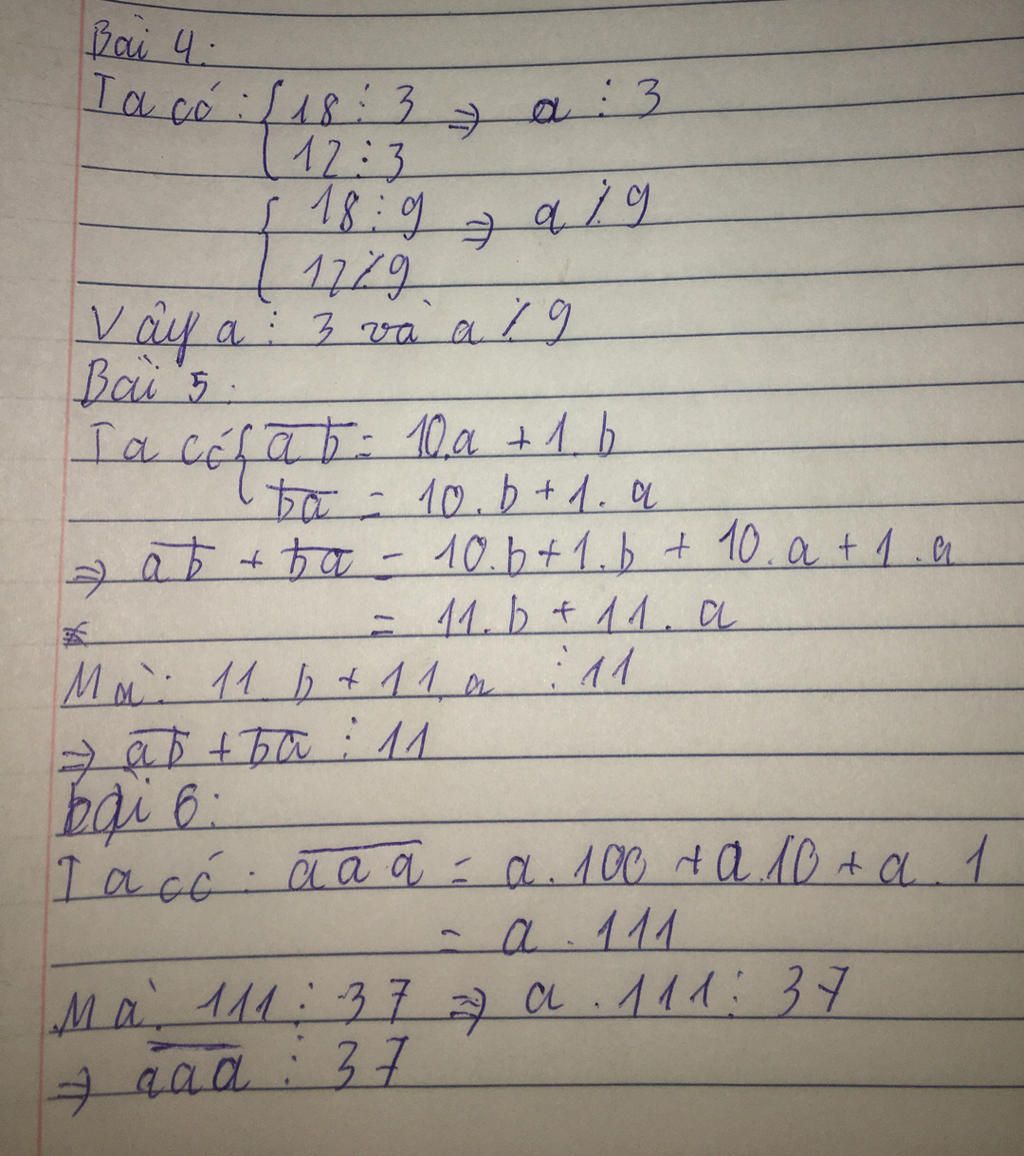 Bài 4:
Ta có: { 18 ⋮ 3 ⇒ a ⋮ 3
12 ⋮ 3
{ 18 ⋮ 9 ⇒ a ⋮̸ 9
12 ⋮̸ 9
Vậy a ⋮ 3 và a ⋮̸ 9
Bài 5:
Ta có { a̅b̅ = 10.a + 1.b
b̅a̅ = 10.b + 1.a
⇒ a̅b̅ + b̅a̅ = 10.b + 1.b + 10.a + 1.a
= 11.b + 11.a
Mà: 11.b + 11.a ⋮ 11
⇒ a̅b̅ + b̅a̅ ⋮ 11
bài 6:
Ta có: a̅a̅a̅ = a.100 + a.10 + a.1
= a.111
Mà: 111 ⋮ 37 ⇒ a.111 ⋮ 37
⇒ a̅a̅a̅ ⋮ 37